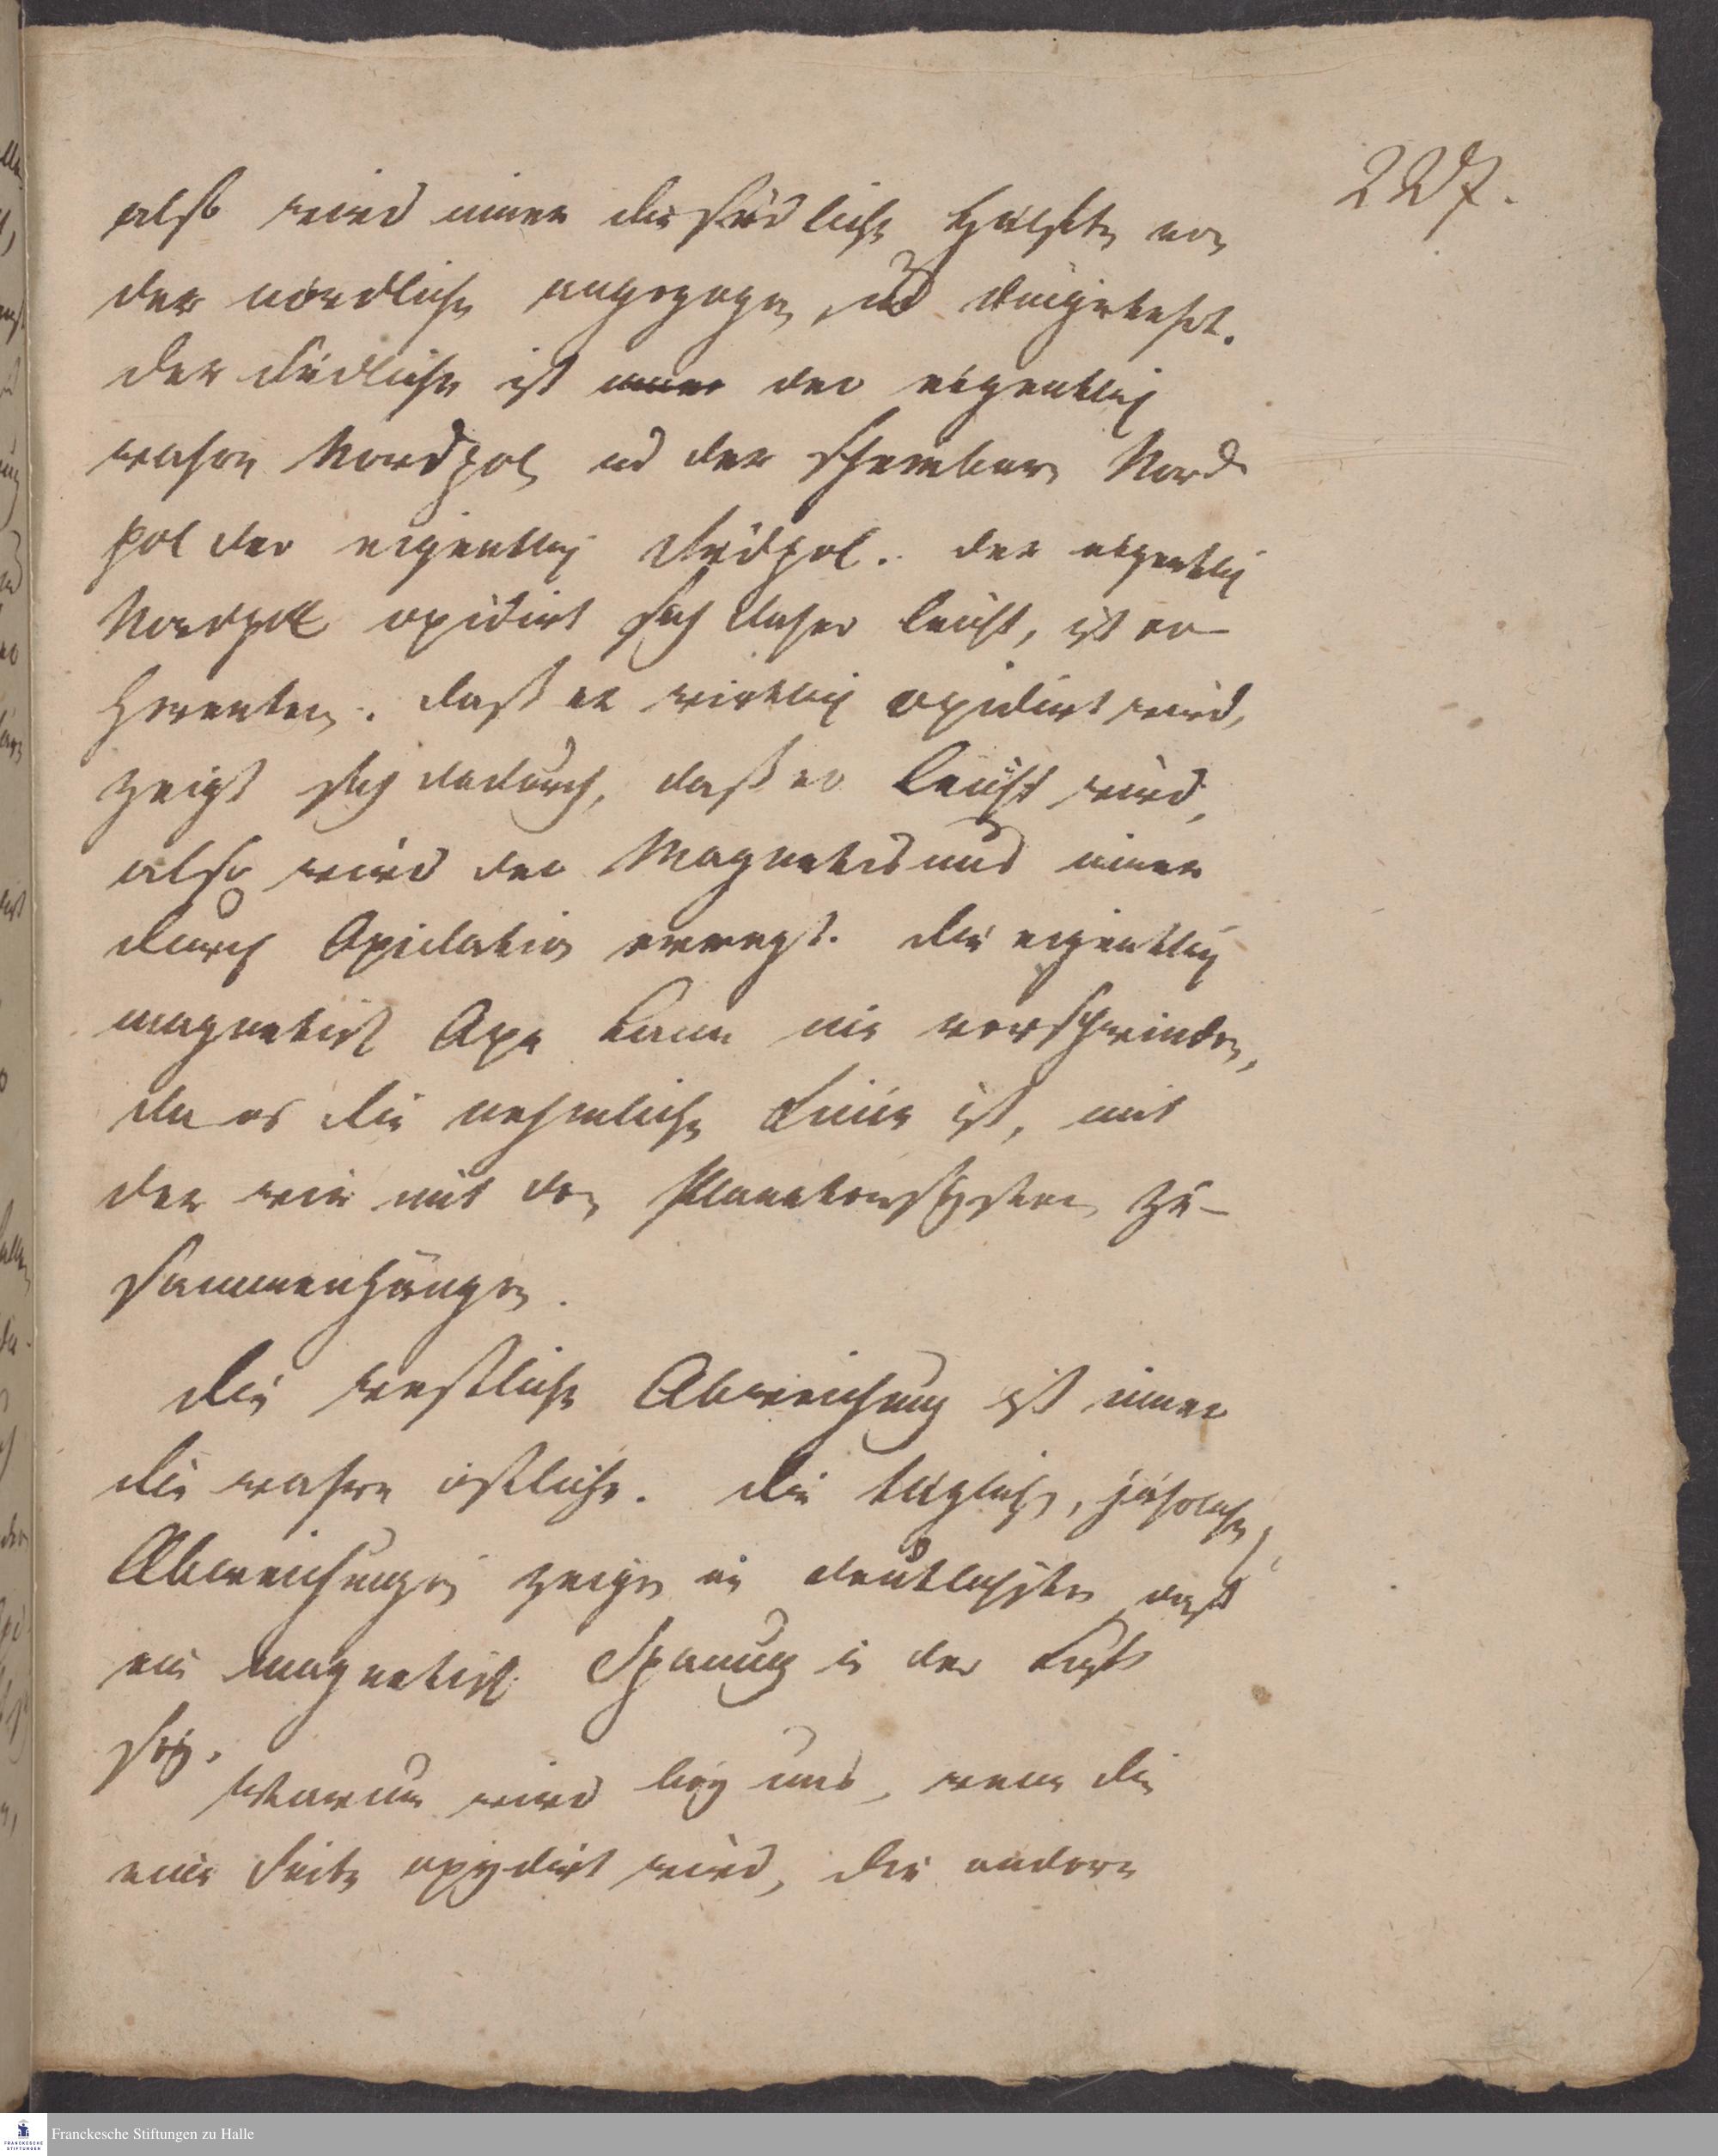 227.
also wird immer die südliche Hälfte von
der nördlichen angezogen, und umgekehrt.
Der südliche ist immer der eigentlich
wahre Nordpol und der scheinbare Nord
pol der eigentlich Südpol. Der eigentlich
Nordpoll oxidirt sich daher leicht, ist er
daß er wirklich oxidirt wird,
zeigt sich dadurch, daß er leicht wird,
also wird der Magnetismus immer
durch Oxidation erregt. Die eigentlich
magnetisch Axe kann nie verschwinden,
da es die nehmliche Linie ist, mit
der wir mit dem Planetensystem zu-
sammenhängen.
Die westliche Abweichung ist immer
die wahre östliche. Die täglichen, jährlichen
Abweichungen zeigen am deutlichsten daß
ein magnetisch Spannung in der Luft
sey.
Warum wird bey uns, wenn die
eine Seite oxydirt wird, die andere
Franckesche Stiftungen zu Halle